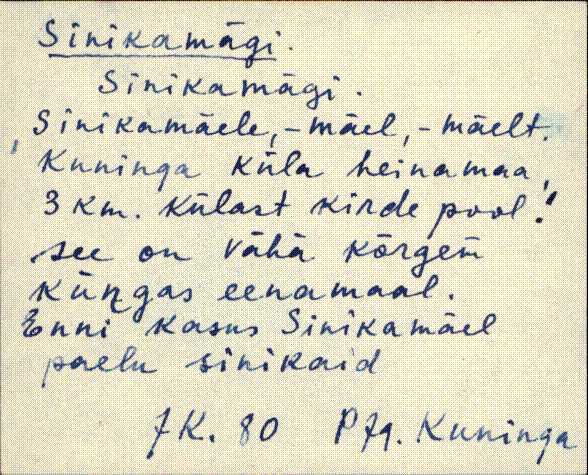 Sinikamägi.
Sinikamägi.
Sinikamäele, -mäel, -mäelt.
Kuninga küla heinamaa,
3 km. külast kirde pool!
see on vähä kõrgem
küngas eenamaal.
Enni kasus Sinikamäel
paelu sinikaid
JK. 80 PJg. Kuninga